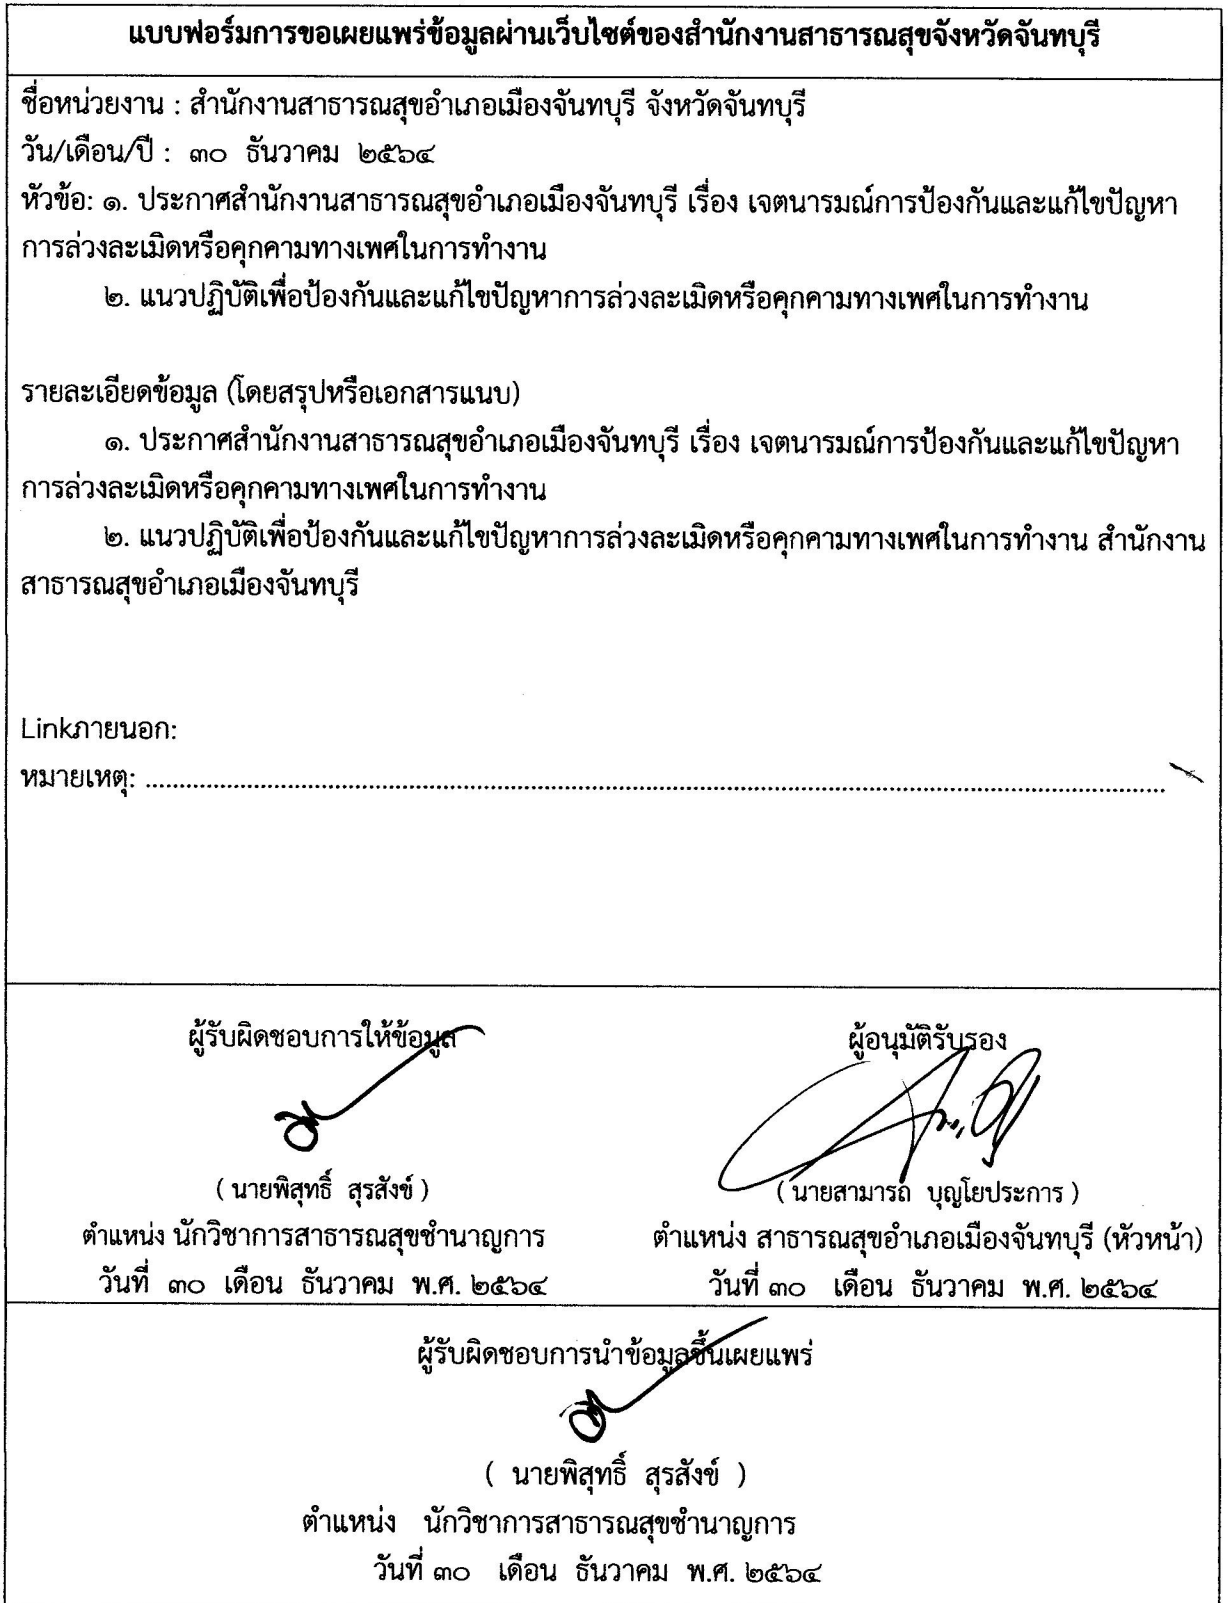 แบบฟอร์มการขอเผยแพร่ข้อมูลผ่านเว็บไซต์ของสำนักงานสาธารณสุขจังหวัดจันทบุรี
ชื่อหน่วยงาน : สำนักงานสาธารณสุขอำเภอเมืองจันทบุรี จังหวัดจันทบุรี
วัน/เดือน/ปี : ๓๐ ธันวาคม ๒๕๖๔
หัวข้อ: ๑. ประกาศสำนักงานสาธารณสุขอำเภอเมืองจันทบุรี เรื่อง เจตนารมณ์การป้องกันและแก้ไขปัญหา
การล่วงละเมิดหรือคุกคามทางเพศในการทำงาน
๒. แนวปฏิบัติเพื่อป้องกันและแก้ไขปัญหาการล่วงละเมิดหรือคุกคามทางเพศในการทำงาน
รายละเอียดข้อมูล (โดยสรุปหรือเอกสารแนบ)
๑. ประกาศสำนักงานสาธารณสุขอำเภอเมืองจันทบุรี เรื่อง เจตนารมณ์การป้องกันและแก้ไขปัญหา
การล่วงละเมิดหรือคุกคามทางเพศในการทำงาน
๒. แนวปฏิบัติเพื่อป้องกันและแก้ไขปัญหาการล่วงละเมิดหรือคุกคามทางเพศในการทำงาน สำนักงาน
สาธารณสุขอำเภอเมืองจันทบุรี
Linkภายนอก:
หมายเหตุ: ........................................................................
ผู้รับผิดชอบการให้ข้อมูล
( นายพิสุทธิ์ สุรสังข์ )
ตำแหน่ง นักวิชาการสาธารณสุขชำนาญการ
วันที่ ๓๐ เดือน ธันวาคม พ.ศ. ๒๕๖๔
ผู้อนุมัติรับรอง
( นายสามารถ บุญโยประการ )
ตำแหน่ง สาธารณสุขอำเภอเมืองจันทบุรี (หัวหน้า)
วันที่ ๓๐ เดือน ธันวาคม พ.ศ. ๒๕๖๔
ผู้รับผิดชอบการนำข้อมูลขึ้นเผยแพร่
( นายพิสุทธิ์ สุรสังข์ )
ตำแหน่ง นักวิชาการสาธารณสุขชำนาญการ
วันที่ ๓๐ เดือน ธันวาคม พ.ศ. ๒๕๖๔